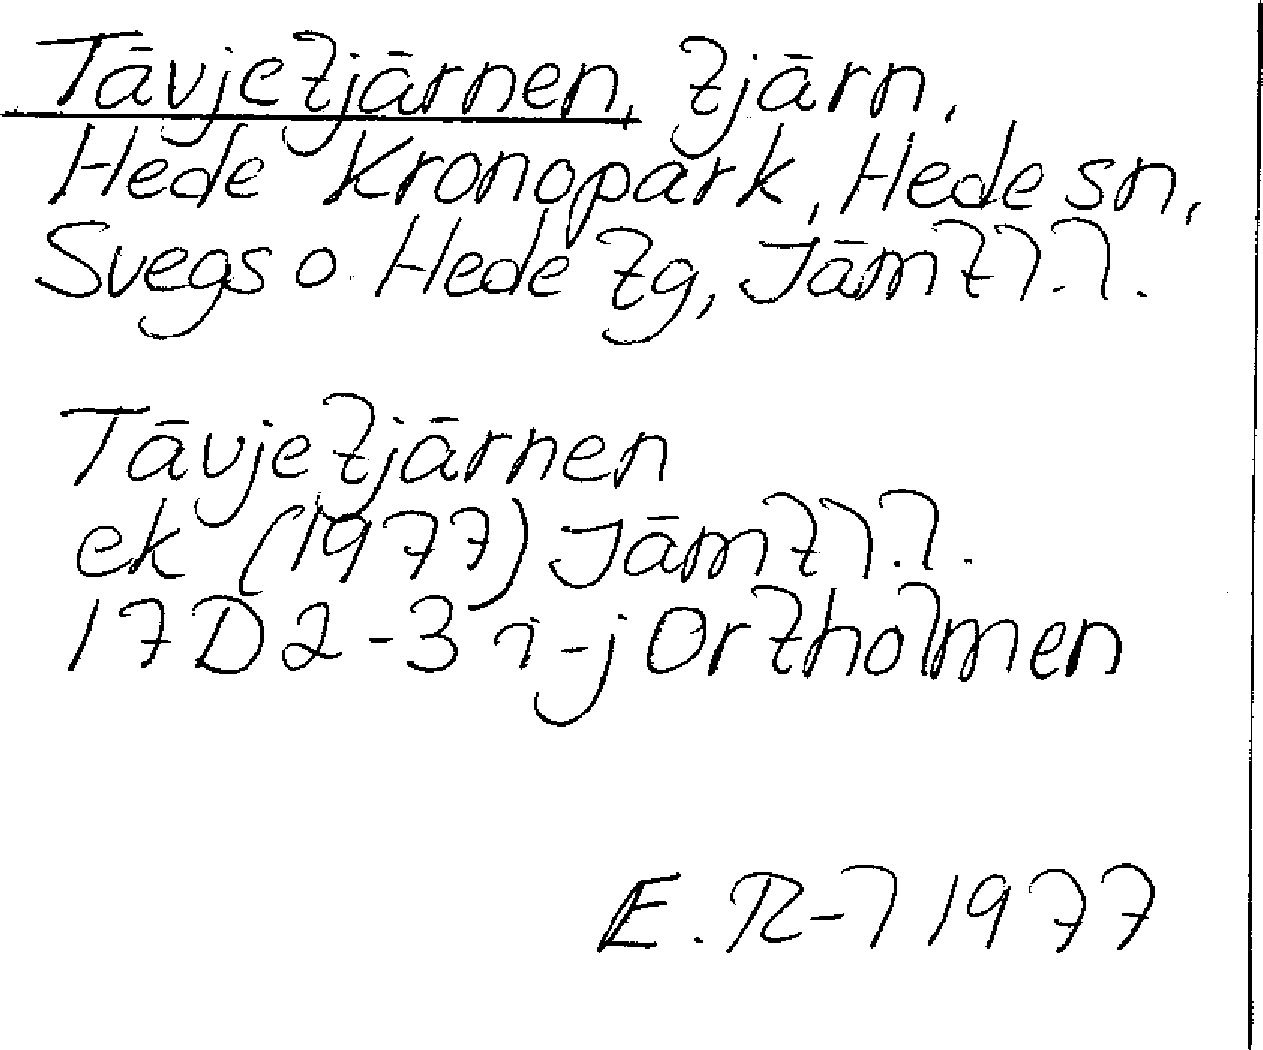 Tävjetjärnen, tjärn,
Hede Kronopark, Hede sn,
Svegs o. Hede tg, Jämtl.l.
Tävjetjärnen
ek (1977) Jämtl.l.
17D2-3 i-j Ortholmen
E.R-l 1977